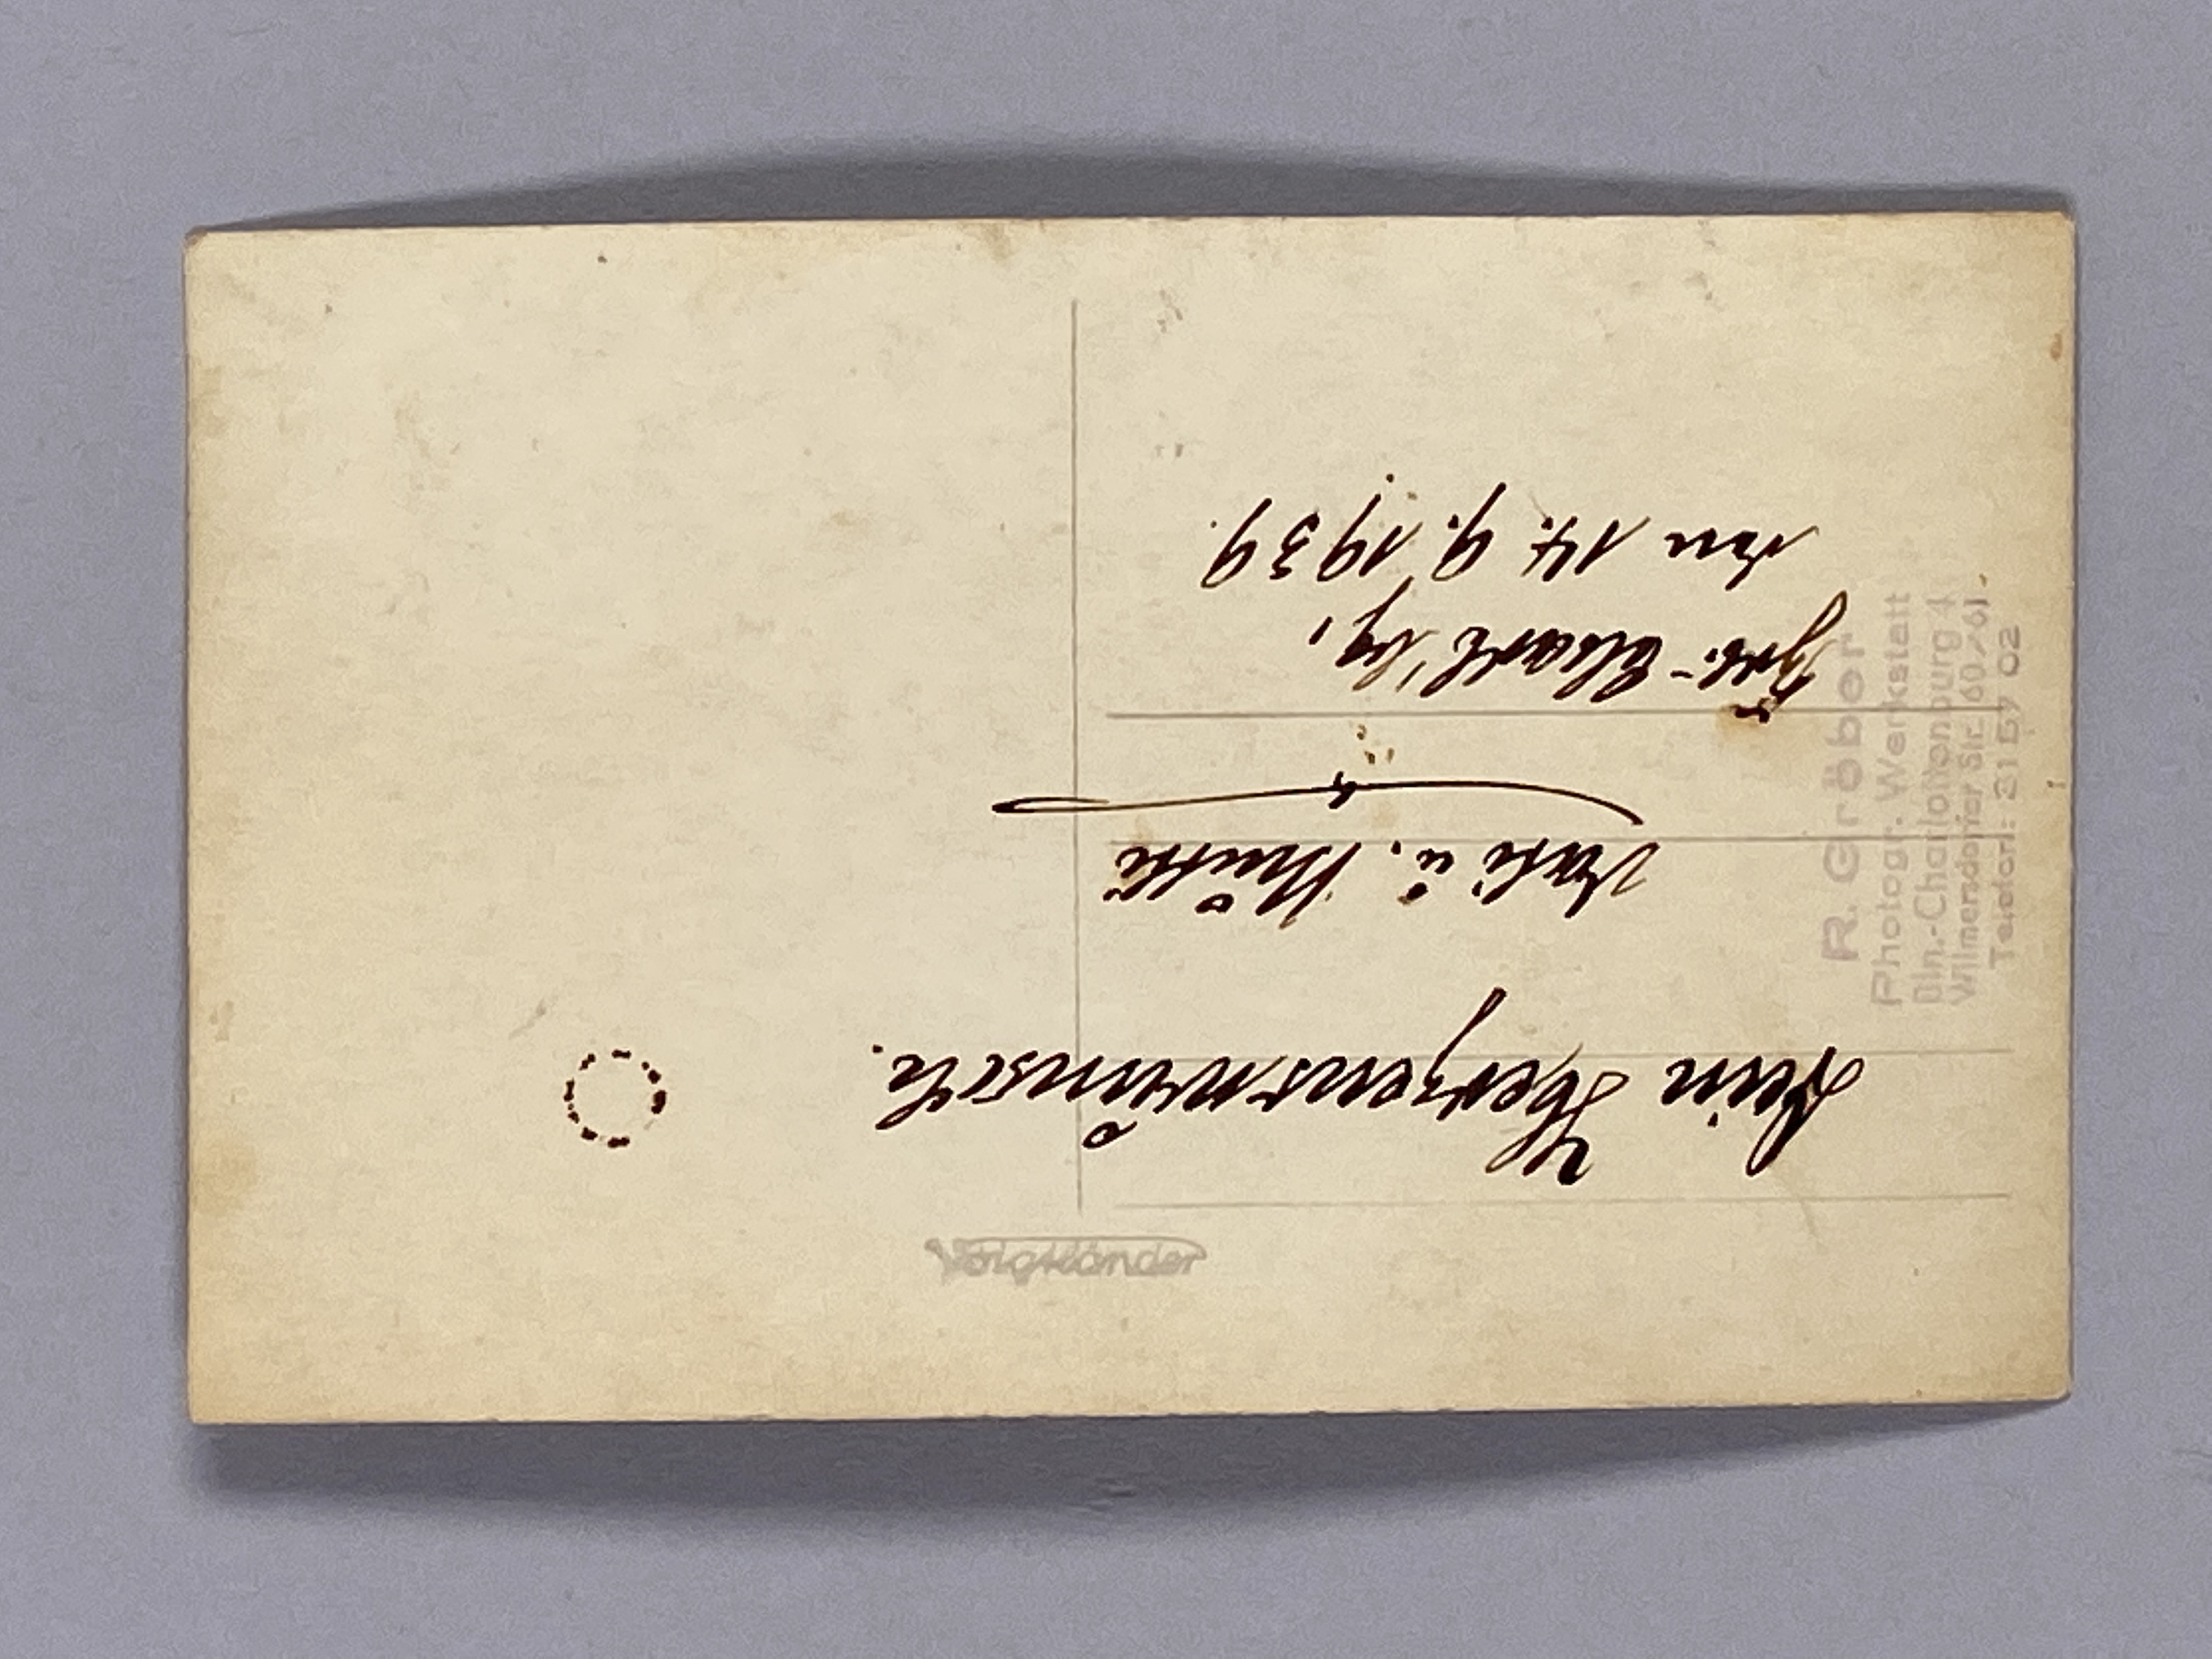 Dein Herzenswunsch.
Vati u. Mutti
Charl'bg,
den 14. 9. 1939.
R. Gröber
Photogr. Werkstatt
Bln.-Charlottenburg 4
Wilmersdorfer Str. 60/61.
Telefon: 02
Voigtländer